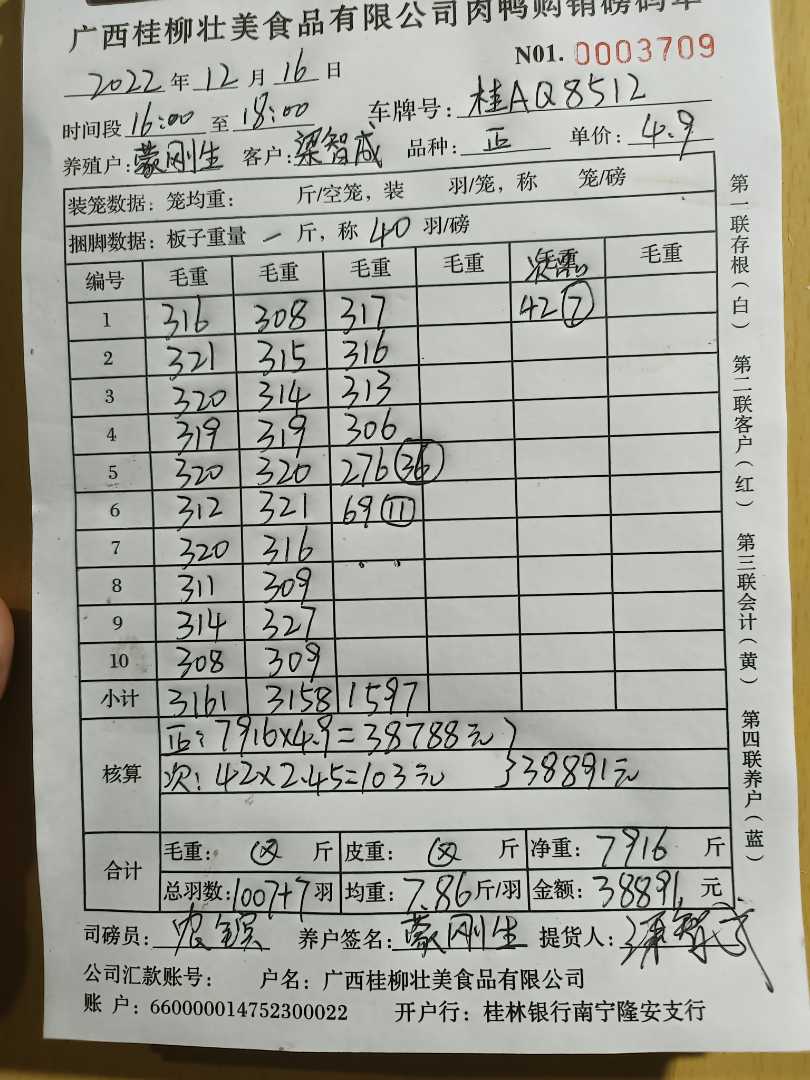 广西桂柳壮美食品有限公司肉鸭购销磅码单
2022年12月16日 N01. 0003709
时间段 16:00 至 18:00 车牌号: 桂AQ8512
养殖户: 蒙刚生 客户: 梁智成 品种: 正 单价: 4.9
装笼数据: 笼均重: 斤/空笼, 装 羽/笼, 称 笼/磅
捆脚数据: 板子重量 一 斤, 称 40 羽/磅
编号 毛重 毛重 毛重 毛重 毛重
1 316 308 317 42 ⑦
2 321 315 316
3 320 314 313
4 319 319 306
5 320 320 276 ㊱
6 312 321 69 ⑪
7 320 316
8 311 309
9 314 327
10 308 309
小计 3161 3158 1597
核算
正: 7916×4.9=38788元
次: 42×2.45=103元 }38891元
合计
毛重: 斤 皮重: 斤 净重: 7916 斤
总羽数: 1007+7 羽 均重: 7.86 斤/羽 金额: 38891 元
司磅员: 养户签名: 蒙刚生 提货人: 梁智成
公司汇款账号: 户名: 广西桂柳壮美食品有限公司
账 户: 660000014752300022 开户行: 桂林银行南宁隆安支行
第一联存根(白) 第二联客户(红) 第三联会计(黄) 第四联养户(蓝)